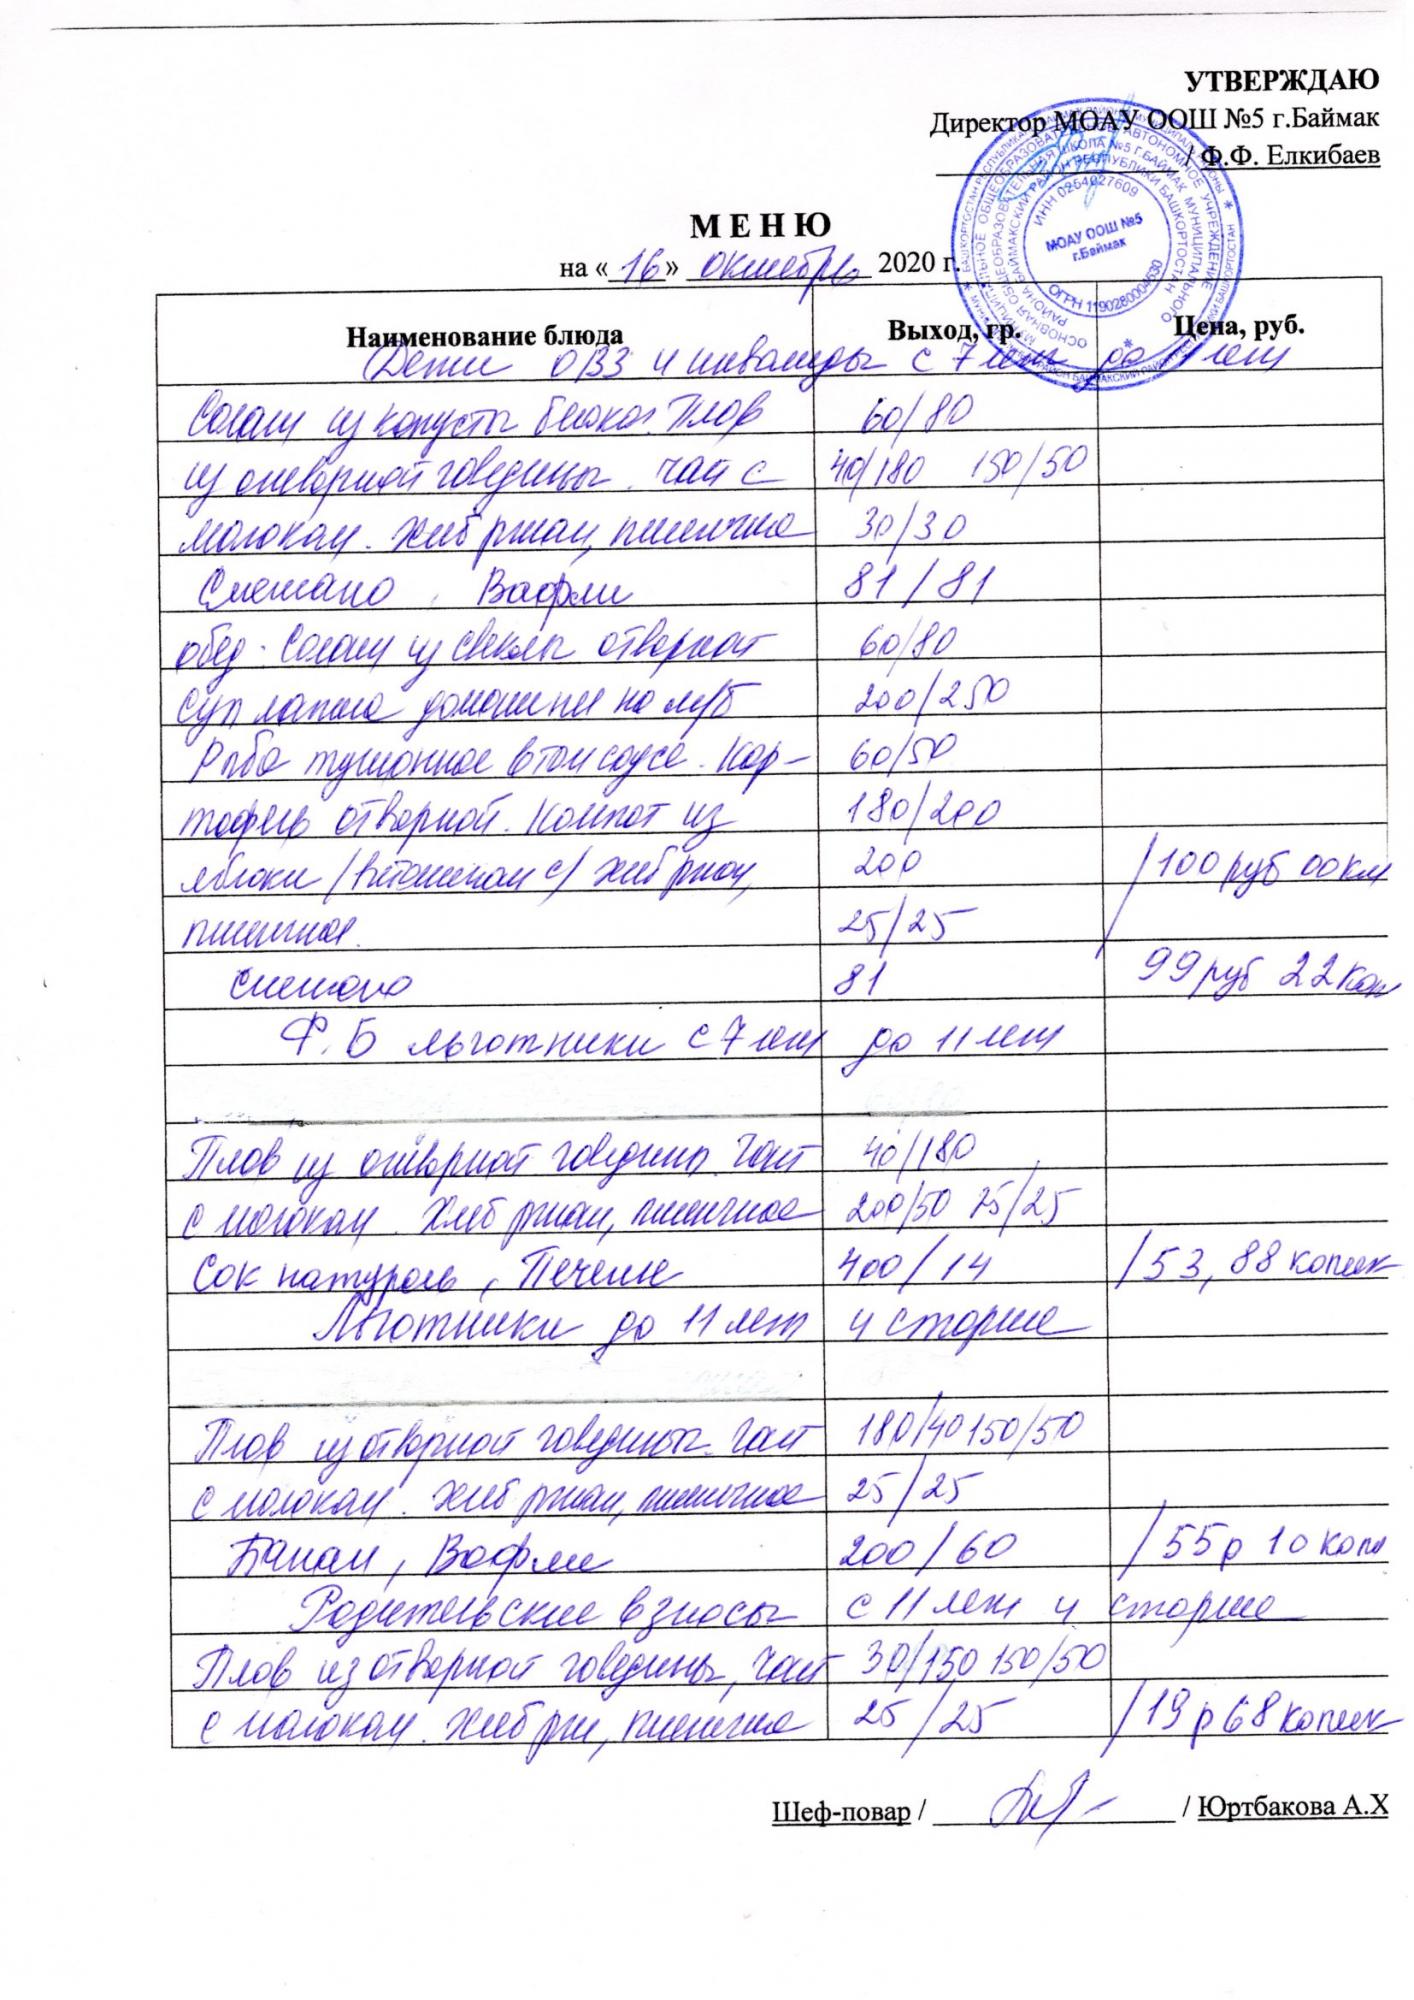 УТВЕРЖДАЮ
Директор МОАУ ООШ №5 г.Баймак
/ Ф.Ф. Елкибаев
ИНН 0254027609
МОАУ ООШ №5
г.Баймак
ОГРН 1190280004630
МЕНЮ
на «16» октябрь 2020 г.
Наименование блюда Выход, гр. Цена, руб.
Дети ОВЗ и инвалиды с 7 лет до 11 лет
Салат из капусты белокоч. Плов 60/80
из отварной говядины. Чай с 40/180 150/50
молоком. Хлеб ржан, пшеничное 30/30
Сметана. Вафли 81/81
обед. Салат из свеклы отварной 60/80
Суп лапша домашняя на м/б 200/250
Рыба тушонное в том соусе. Кар- 60/50
тофель отварной. Компот из 180/200
яблоки /витамином с/ хлеб ржан, 200 /100 руб 00 коп
пшеничное. 25/25
сметана 81 99 руб 22 коп
Ф.Б льготники с 7 лет до 11 лет
Плов из отварной говядины. Чай 40/180
с молоком. Хлеб ржан, пшеничное 200/50 25/25
Сок натураль, Печенье 400/14 /53, 88 копеек
Льготники до 11 лет и старше
Плов из отварной говядины. Чай 180/40 150/50
с молоком. Хлеб ржан, пшеничное 25/25
Банан, Вафли 200/60 /55р 10 коп
Родительские взносы с 11 лет и старше
Плов из отварной говядины, Чай 30/150 150/50
с молоком. Хлеб рж, пшеничное 25/25 /19 р 68 копеек
Шеф-повар / / Юртбакова А.Х